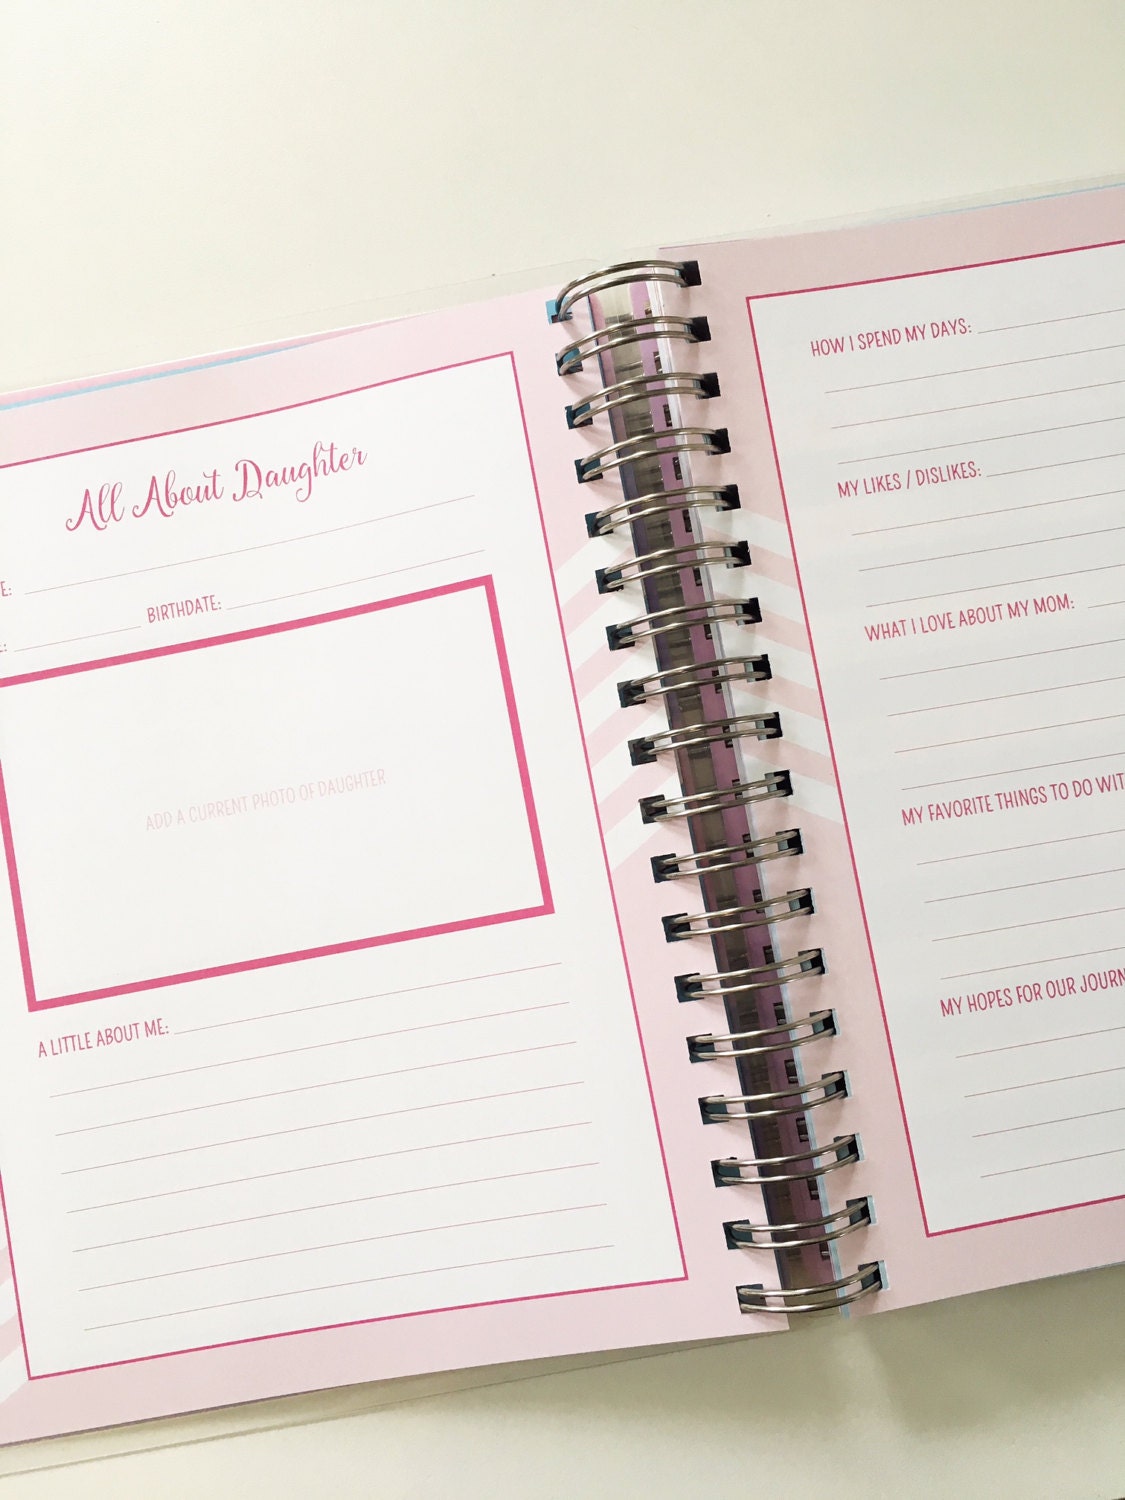 All About Daughter
BIRTHDATE:
ADD A CURRENT PHOTO OF DAUGHTER
A LITTLE ABOUT ME:
HOW I SPEND MY DAYS:
MY LIKES / DISLIKES:
WHAT I LOVE ABOUT MY MOM:
MY FAVORITE THINGS TO DO WIT
MY HOPES FOR OUR JOURN